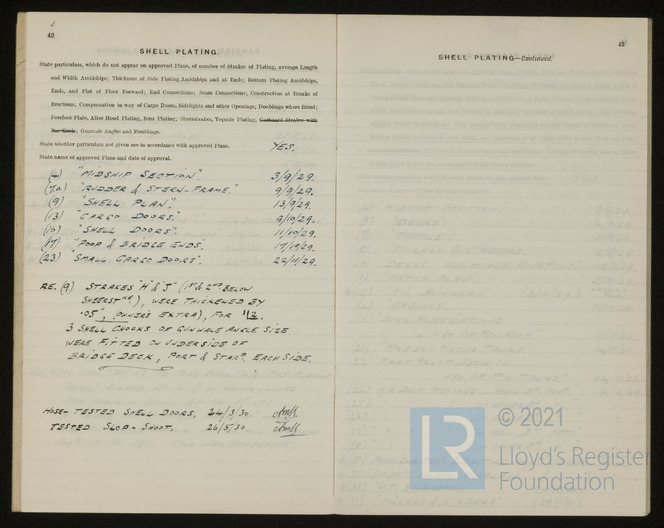 42
SHELL PLATING.
State particulars, which do not appear on approved Plans, of number of Strakes of Plating, average Length
and Width Amidships; Thickness of Side Plating Amidships and at Ends; Bottom Plating Amidships,
Ends, and Flat of Floor Forward; End Connections; Seam Connections; Construction at Breaks of
Erections; Compensation in way of Cargo Doors, Sidelights and other Openings; Doublings where fitted;
Forefoot Plate, After Hood Plating, Boss Plating; Sheerstrakes, Topside Plating, Garboard Strakes with
Bar Keels; Gunwale Angles and Mouldings.
State whether particulars not given are in accordance with approved Plans. YES.
State name of approved Plans and date of approval.
(4) "MIDSHIP SECTION". 3/9/29.
(7A) "RUDDER & STERN-FRAME." 9/9/29.
(9) "SHELL PLAN". 13/9/29.
(13) "CARGO DOORS." 9/10/29.
(16) "SHELL DOORS". 11/10/29.
(17) "POOP & BRIDGE ENDS". 17/10/29.
(23) "SMALL CARGO DOORS". 22/11/29.
RE. (9) STRAKES "H & J" (1ST & 2ND BELOW
SHEERSTKE), WERE THICKENED BY
.05", (OWNER'S EXTRA), FOR 1/2.
3 SHELL CHOCKS OF GUNWALE ANGLE SIZE
WERE FITTED ON UNDERSIDE OF
BRIDGE DECK, PORT & STARD. EACH SIDE.
HOSE-TESTED SHELL DOORS. 24/3/30.
TESTED SLOP-SHOOT. 26/5/30.
43
SHELL PLATING—Continued.
LR
© 2021
Lloyd's Register
Foundation